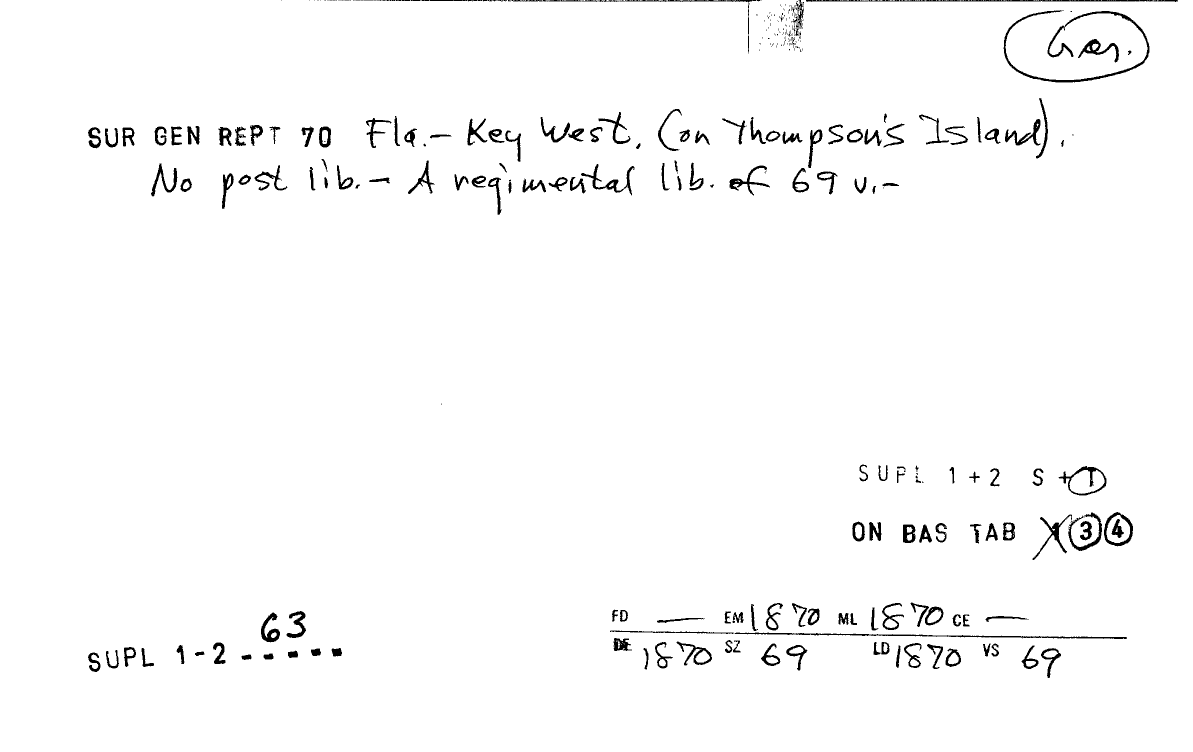 Gar.
SUR GEN REPT 70 Fla.- Key West, (on Thompson's Island).
No post lib.- A regimental lib. of 69 v.-
SUPL 1+2 S + T
ON BAS TAB 3 4
63
SUPL 1-2 -----
FD — EM 1870 ML 1870 CE —
DE 1870 SZ 69 LD 1870 VS 69